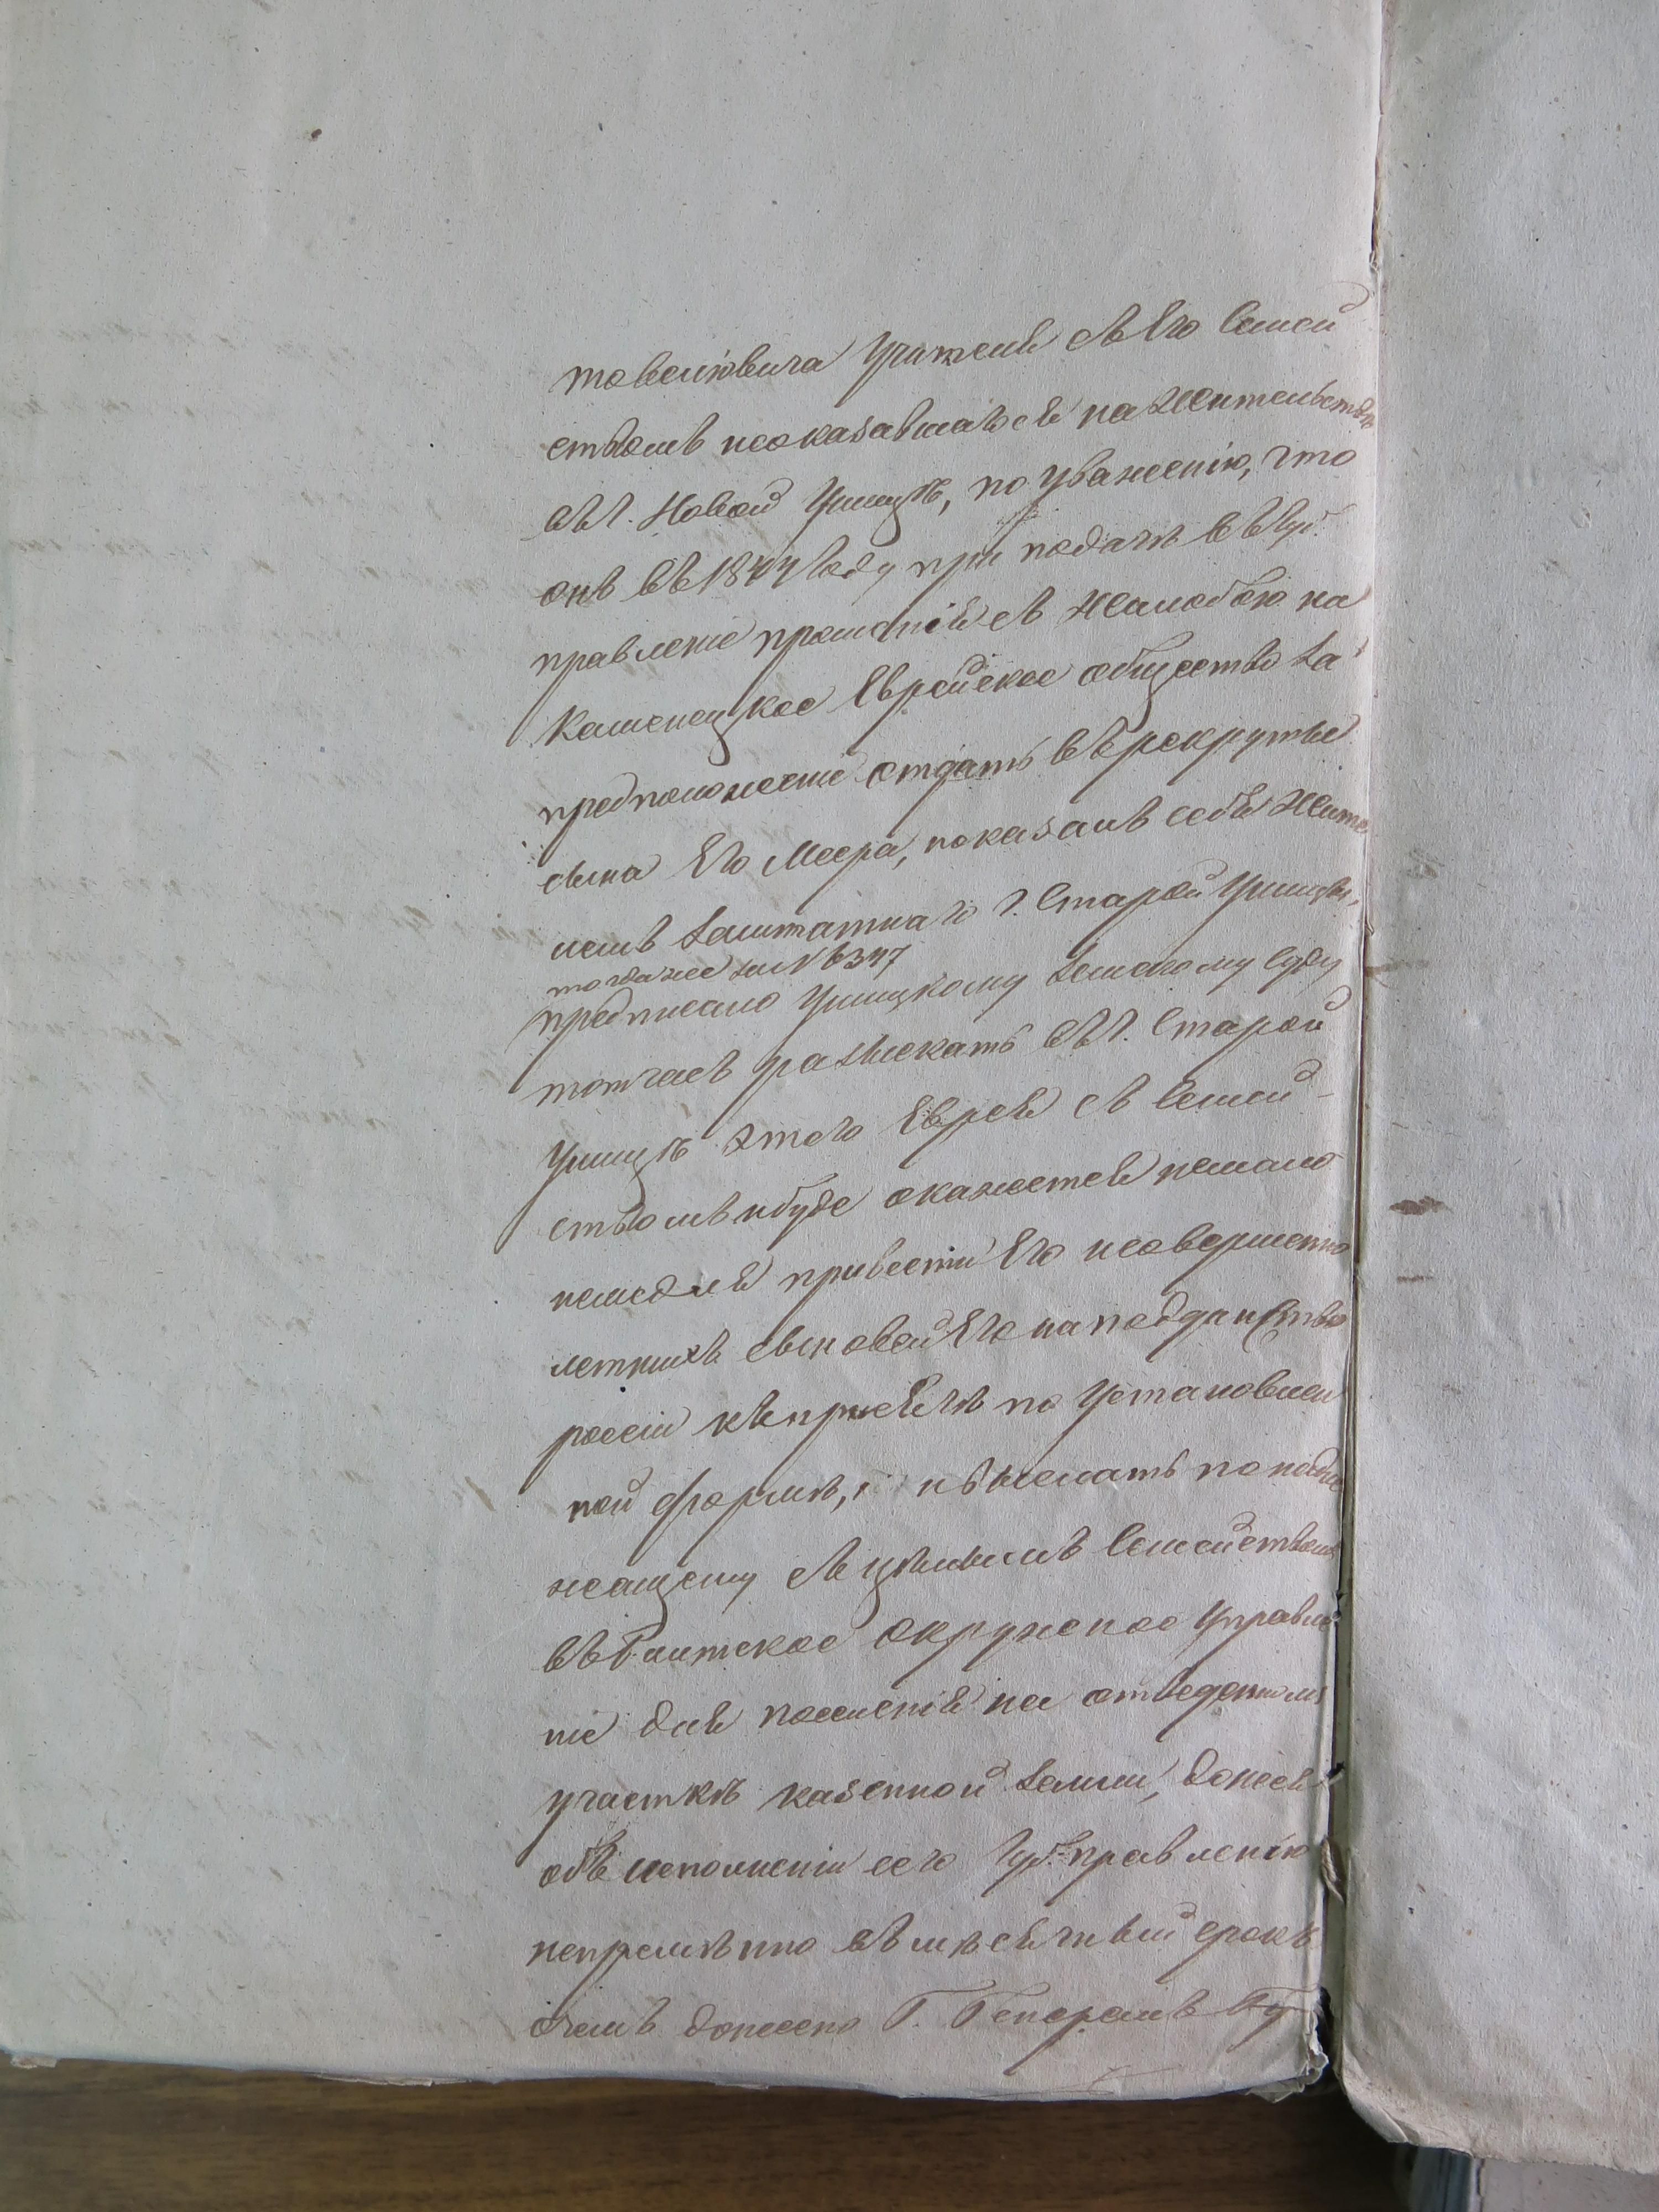 товелiовича Учителя съ Его Семей
ствомъ неоказавшагося на Жительстве
въ г. Новой Ушицѣ, по уваженію, что
онъ въ 1844 Году при подачѣ въ Губ.
правленіе прошенія съ Жалобою на
Каменецкое Еврейское общество за
предположеніе отдать въ рекруты
сына Его Меера, показалъ себя Жите
лемъ заштатнаго г. Старой Ушицы,
тогда же за № 6347
предписано Ушицкому Земскому Суду
тотчасъ разыскать въ г. Старой
Ушицѣ этого Еврея съ Семей-
ствомъ и буде окажется немало
немедля привести Его и совершенно
летнихъ сыновей Его на подданство
россіи къ присягѣ по Установлен
ной формѣ, и выслать по надле
жащему съ цѣлымъ Семействомъ
въ Балтское Окружное Управле
ніе для поселенія на отведенномъ
участкѣ казенной земли, донеся
объ исполненіи сего Губ. правленію
непремѣнно въ мѣсячный срокъ
о чемъ донесено Г. Генералъ Гу